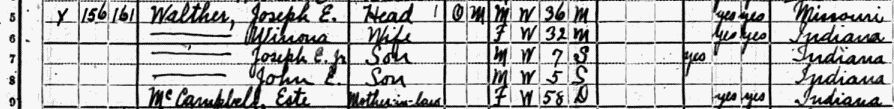 5 Y 156 161 Walther, Joseph E. Head 1 O M M W 36 M yes yes Missouri
6 —— Winona Wife F W 32 M yes yes Indiana
7 —— Joseph E. Jr Son M W 7 S yes Indiana
8 —— John E. Son M W 5 S Indiana
9 McCampbell, Este Mother-in-law F W 58 D yes yes Indiana